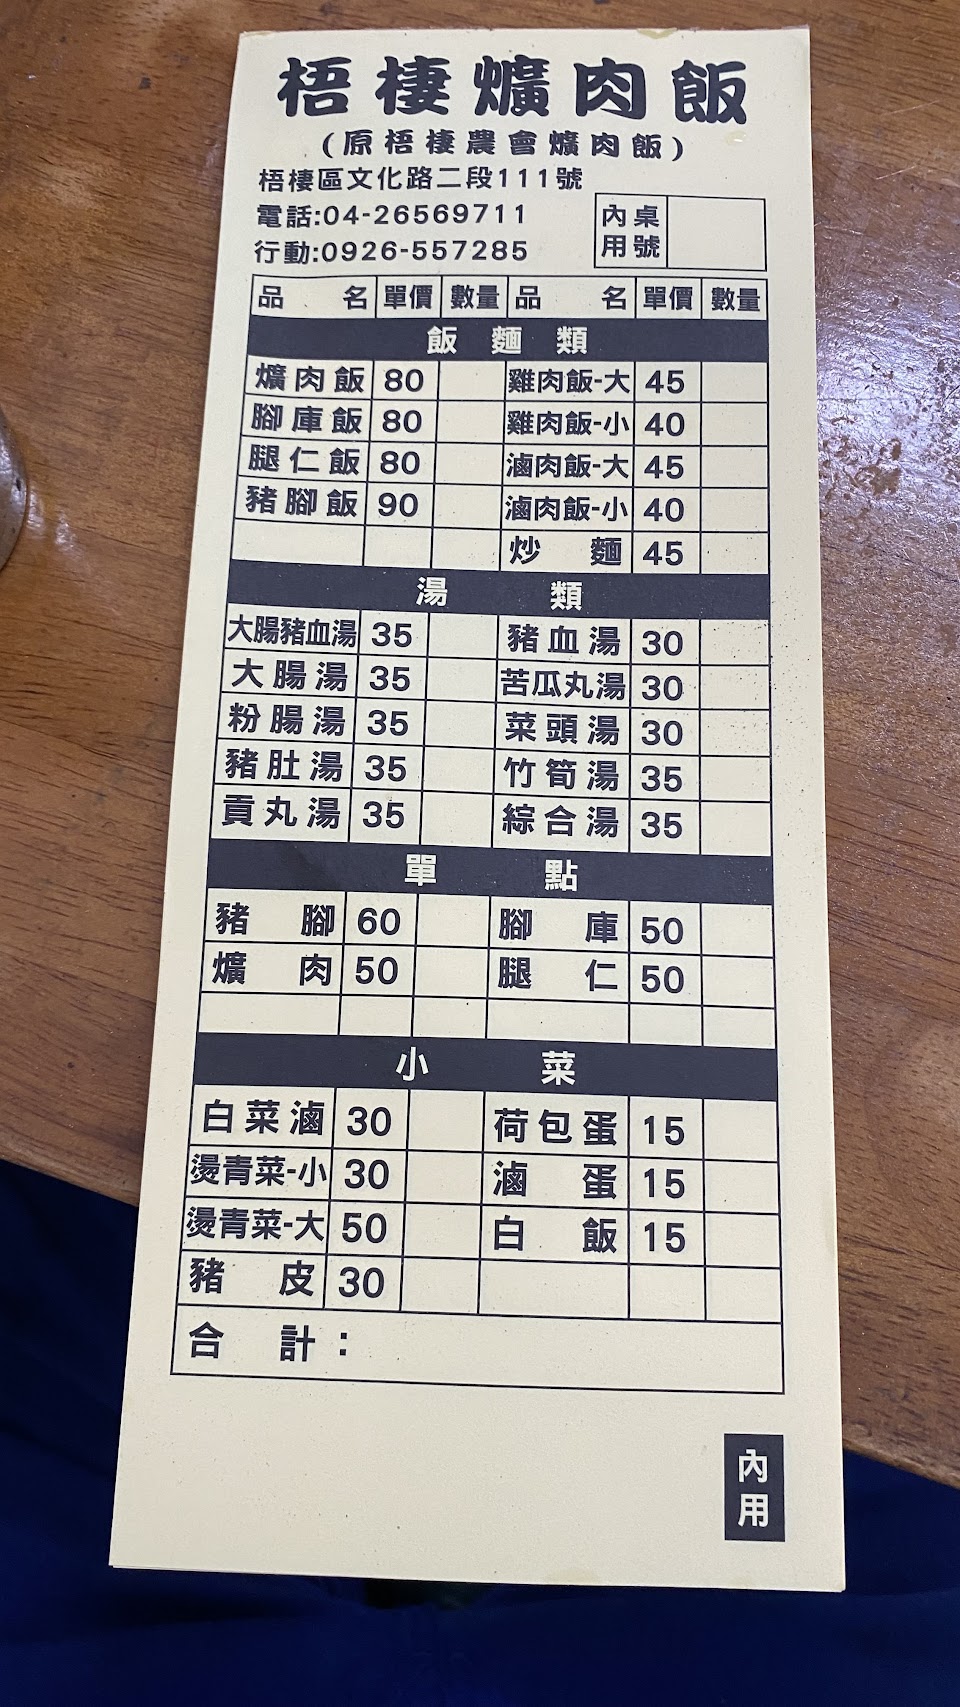 梧棲爌肉飯
(原梧棲農會爌肉飯)
梧棲區文化路二段111號
電話:04-26569711
行動:0926-557285
內用 桌號
品名 單價 數量 品名 單價 數量
飯麵類
爌肉飯 80 雞肉飯-大 45
腳庫飯 80 雞肉飯-小 40
腿仁飯 80 滷肉飯-大 45
豬腳飯 90 滷肉飯-小 40
炒麵 45
湯類
大腸豬血湯 35 豬血湯 30
大腸湯 35 苦瓜丸湯 30
粉腸湯 35 菜頭湯 30
豬肚湯 35 竹筍湯 35
貢丸湯 35 綜合湯 35
單點
豬腳 60 腳庫 50
爌肉 50 腿仁 50
小菜
白菜滷 30 荷包蛋 15
燙青菜-小 30 滷蛋 15
燙青菜-大 50 白飯 15
豬皮 30
合計：
內用